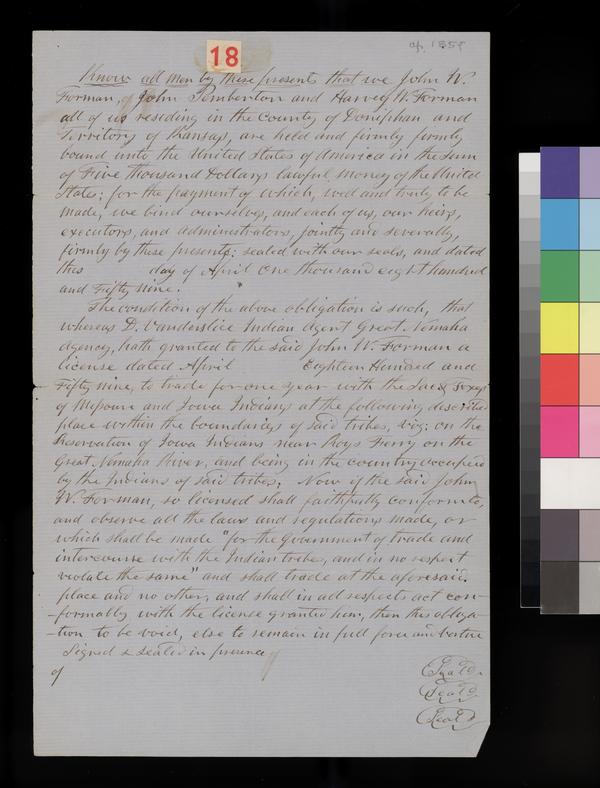 18
ap. 1859
Know all men by these presents that we John W.
Forman, of John Pemberton and Harvey W. Forman
all of us residing in the County of Doniphan and
Territory of Kansas, are held and firmly firmly
bound unto the United States of America in the sum
of Five Thousand Dollars lawful money of the United
States: for the payment of which, well and truly to be
made, we bind ourselves, and each of us, our heirs,
executors, and administrators, jointly and severally,
firmly by these presents: sealed with our seals, and dated
this day of April One thousand eight hundred
and Fifty nine.
The condition of the above obligation is such, that
whereas D. Vanderslice Indian Agent Great Nemaha
Agency, hath granted to the said John W. Forman a
license dated April Eighteen Hundred and
Fifty nine, to trade for one year with the Sac & Foxes
of Missouri and Iowa Indians at the following described
place within the boundaries of said tribes, viz: on the
Reservation of Iowa Indians near Roys Ferry on the
Great Nemaha River, and being in the country occupied
by the Indians of said tribes, Now if the said John
W. Forman, so licensed shall faithfully conform to,
and observe all the laws and regulations made, or
which shall be made "for the Government of trade and
intercourse with the Indian tribes, and in no respect
violate the same" and shall trade at the aforesaid
place and no other, and shall in all respects act con-
-formably with the license granted him, then this obliga-
-tion to be void, else to remain in full force and vertue
Signed & sealed in presence
of
Seal
Seal
Seal